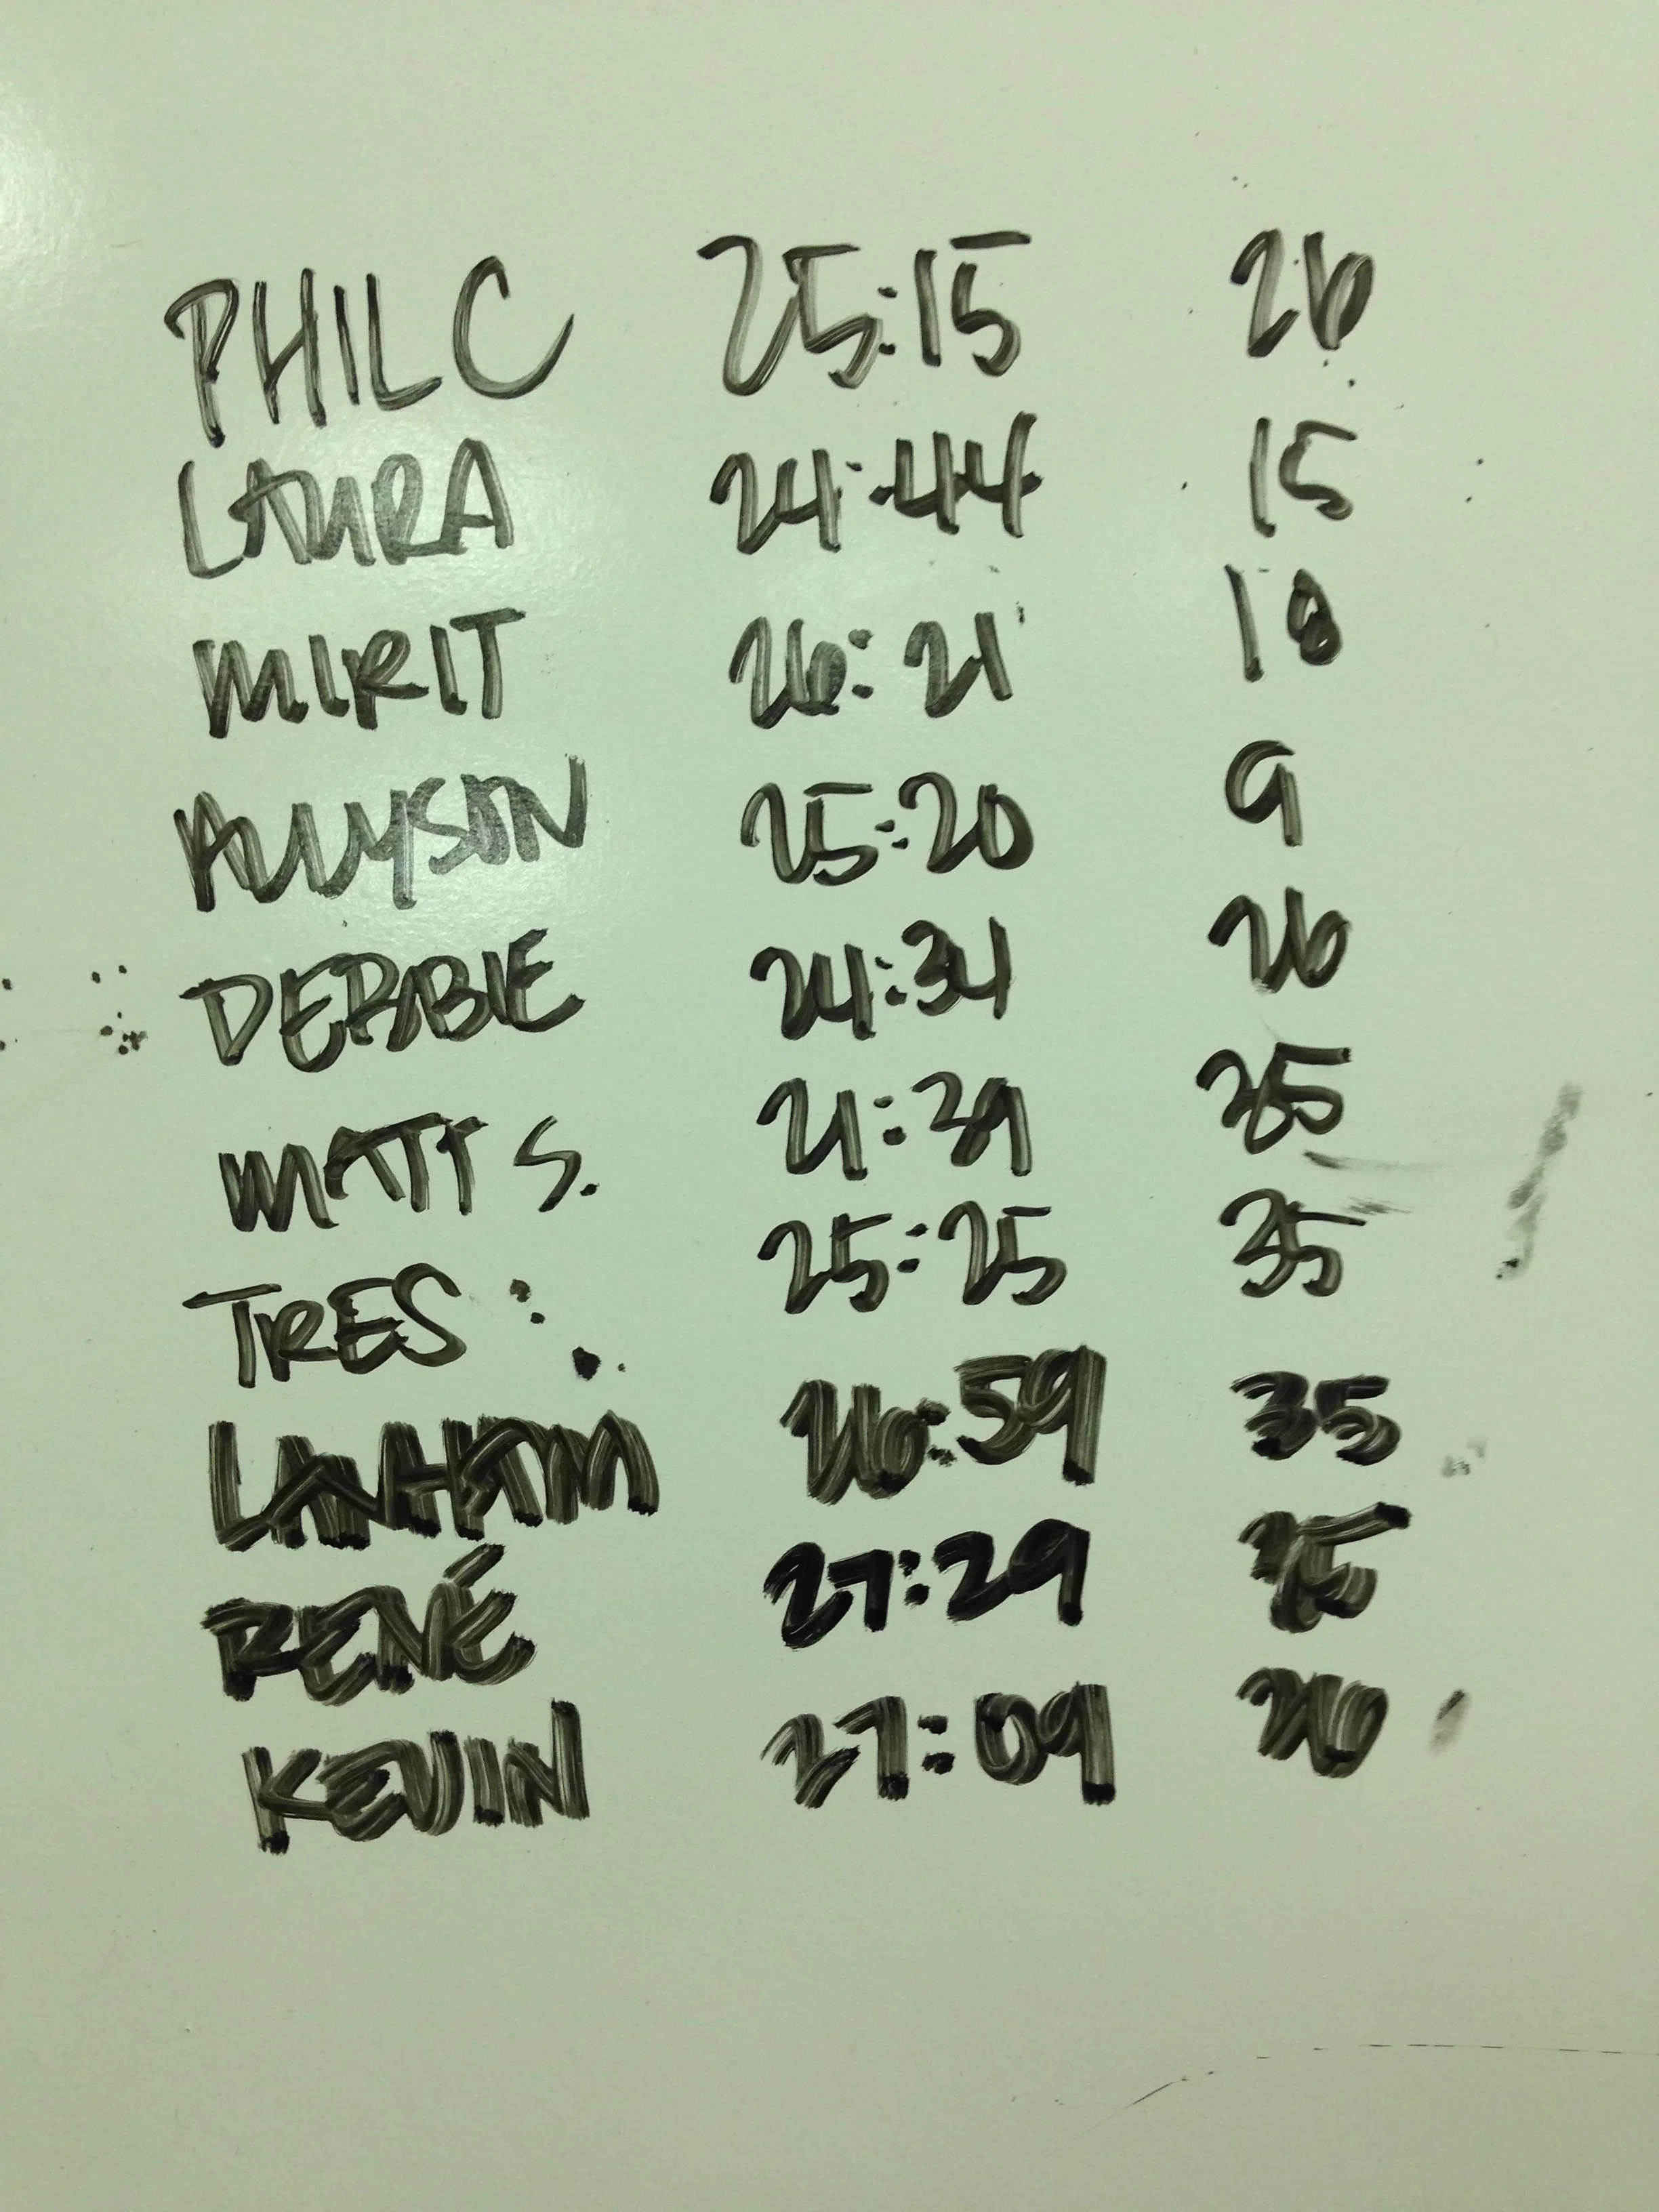 PHIL C 25:15 26
LAURA 24:44 15
MIRIT 26:21 18
ALLYSON 25:20 9
DEBBIE 24:34 26
MATT S. 21:39 35
TRES : 25:25 35
LANHAM 26:59 35
RENÉ 27:29
KEVIN 27:09 26